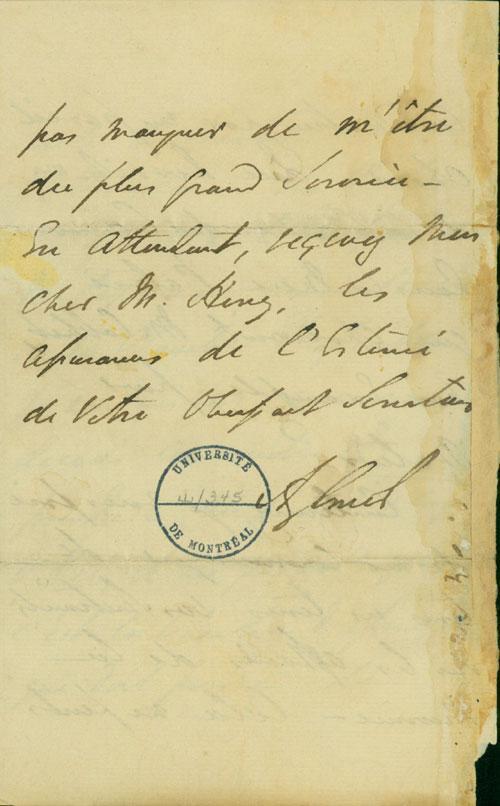 pas manquer de m'être
du plus grand Service –
En attendant, reçevez Mon
cher M. King, les
assurances de l'Estime
de Votre Obeissant Serviteur
UNIVERSITÉ
4/345
DE MONTRÉAL